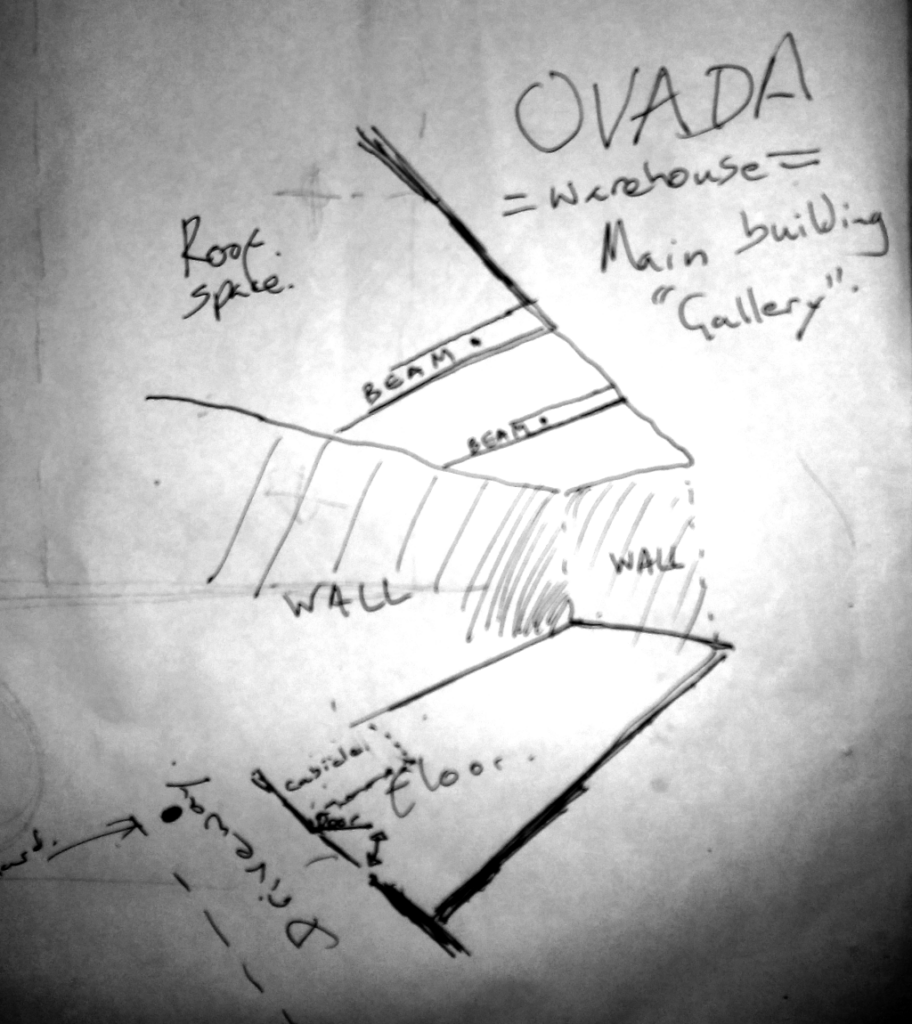 OVADA
= Warehouse =
Main building
"Gallery".
Roof.
space.
BEAM
BEAM
WALL
WALL
floor.
Door
Driveway